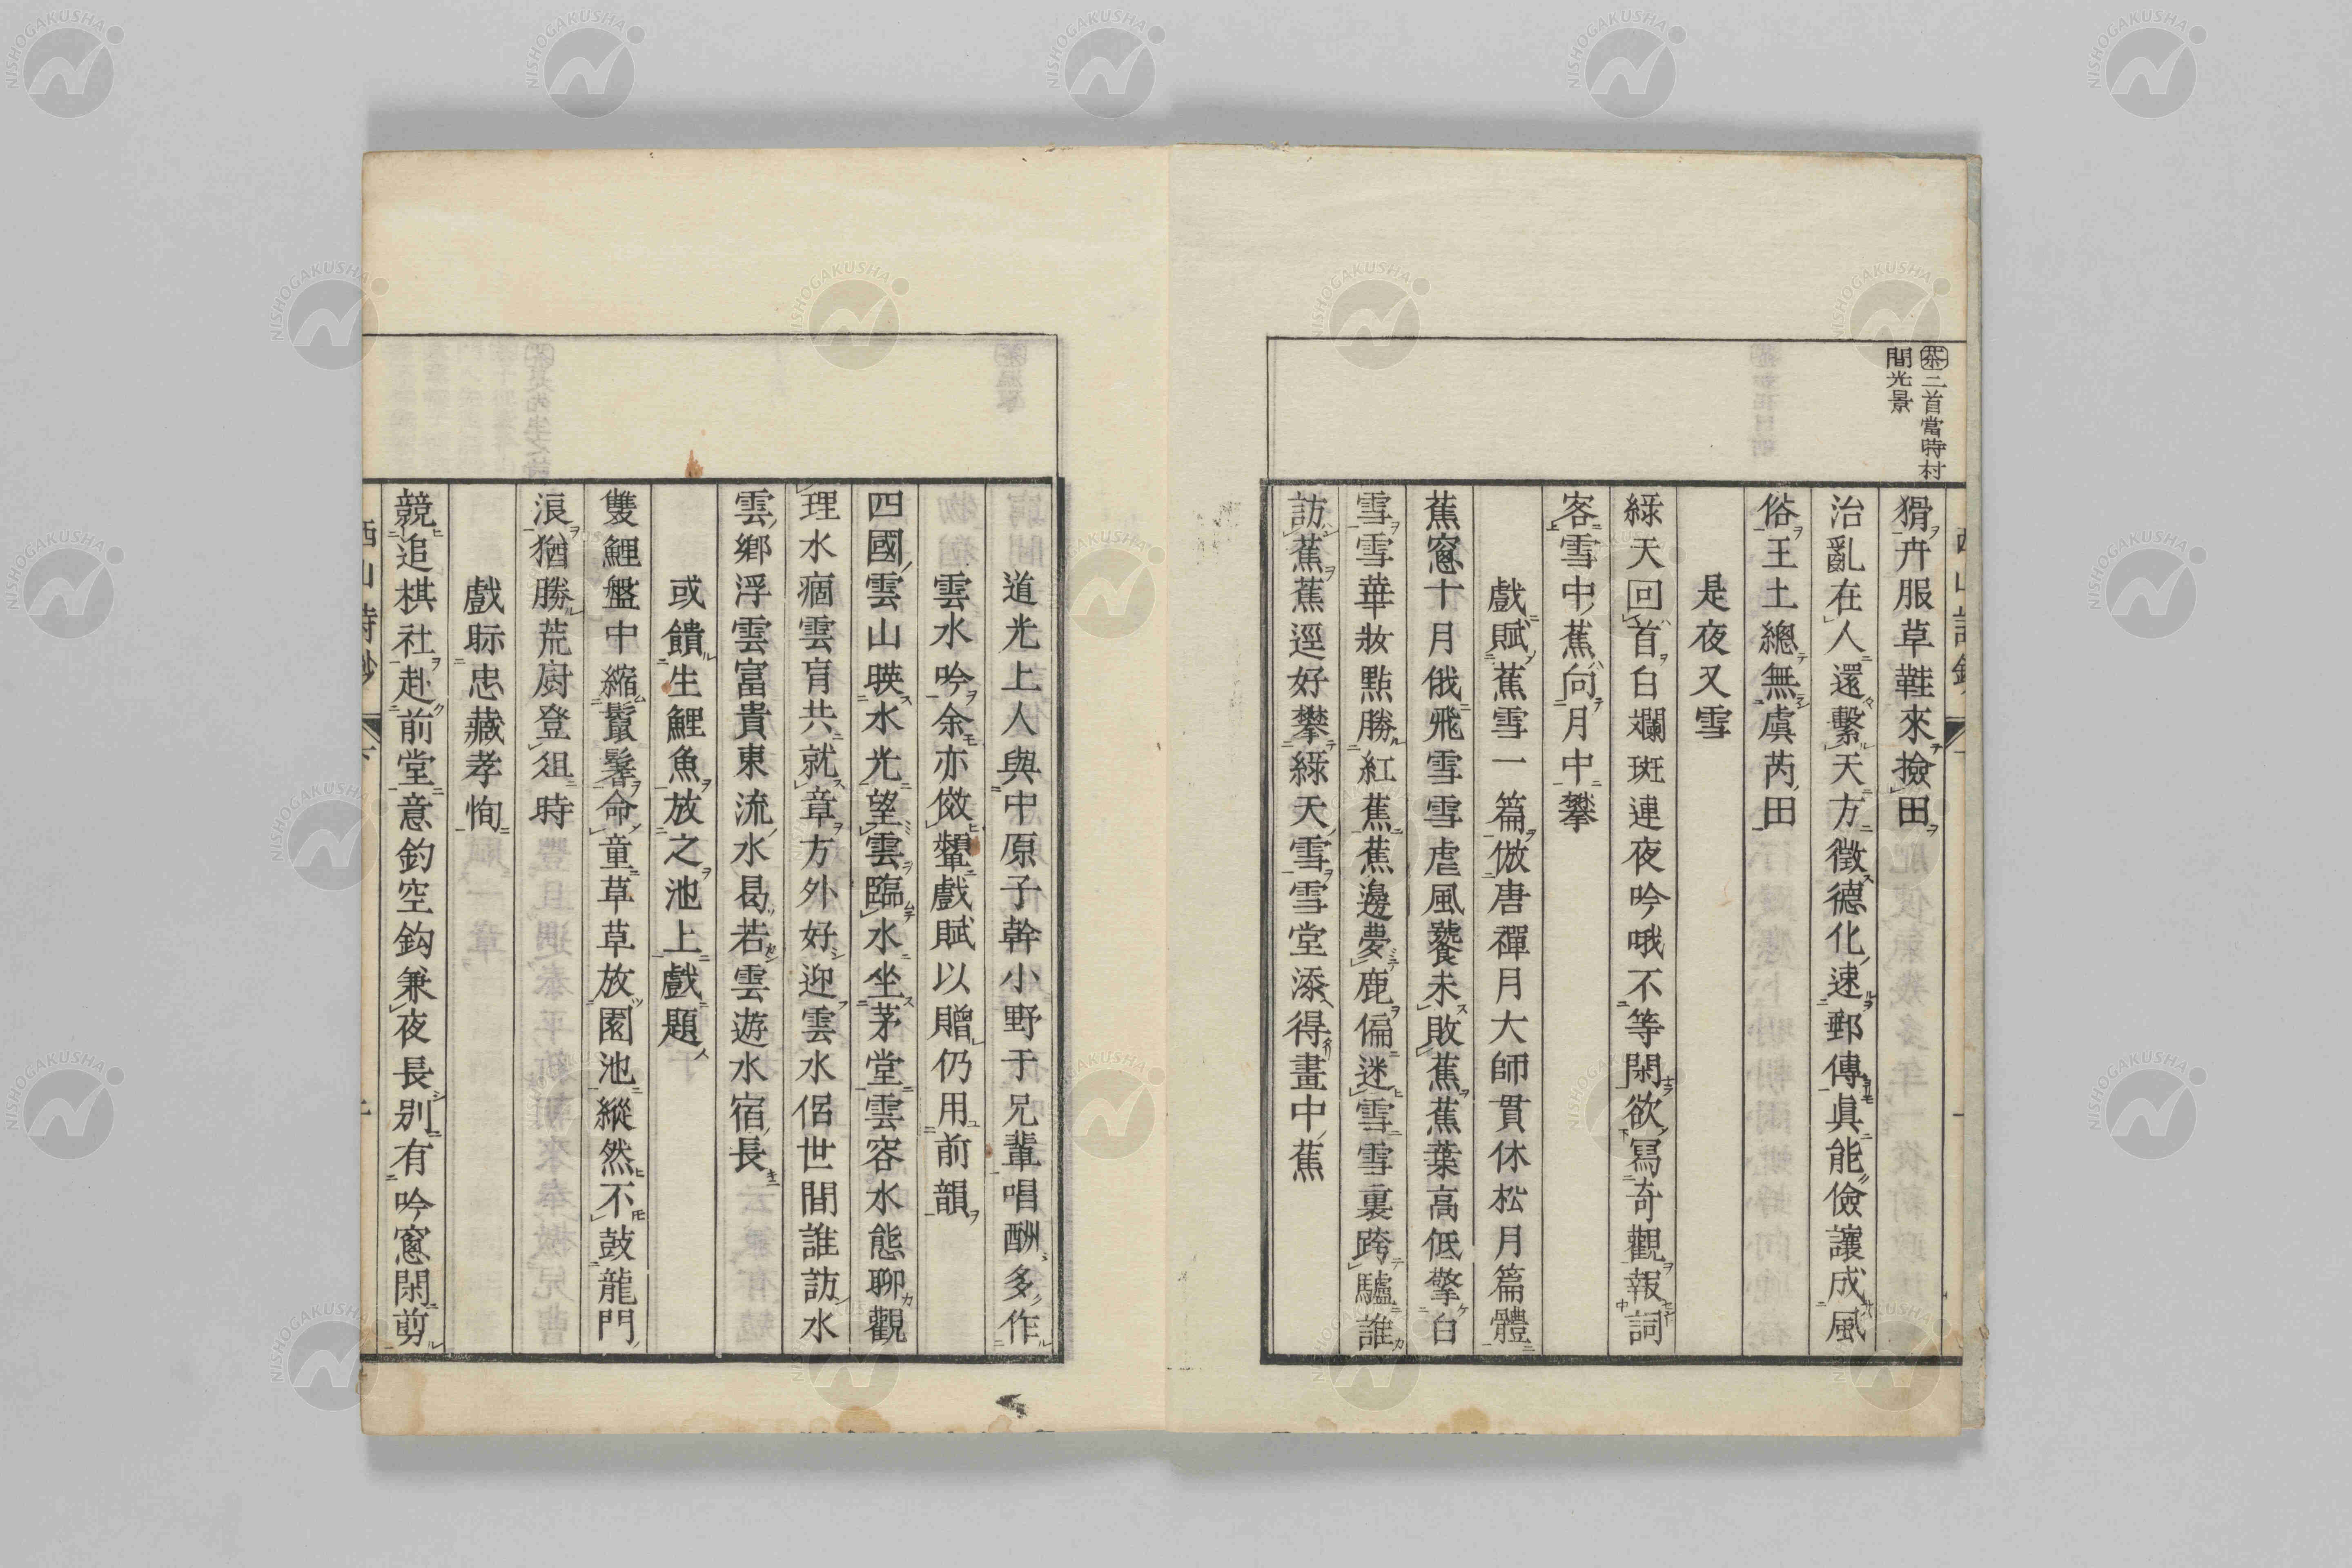 茶二首當時村
間光景
猾卉服草鞋來撿田
治亂在人還繫天方徴德化速郵傳眞能儉讓成風
俗王土總無虞芮田
是夜又雪
綠天回首白斕斑連夜吟哦不等閑欲寫奇觀報詞
客雪中蕉向月中攀
戲賦蕉雪一篇倣唐禪月大師貫休松月篇體
蕉窓十月俄飛雪雪虐風饕未敗蕉蕉葉高低擎白
雪雪華妝點勝紅蕉蕉邊夢鹿偏迷雪雪裏跨驢誰
訪蕉蕉逕好攀綠天雪雪堂添得畫中蕉
道光上人與中原子幹小野于兄輩唱酬多作
雲水吟余亦傚顰戲賦以贈仍用前韻
四國雲山暎水光望雲臨水坐茅堂雲容水態聊觀
理水痼雲肓共就章方外好迎雲水侶世間誰訪水
雲鄉浮雲富貴東流水曷若雲遊水宿長
或饋生鯉魚放之池上戲題
雙鯉盤中縮鬣鬐命童草草放園池縱然不鼓龍門
浪猶勝荒廚登俎時
戲眎忠藏孝恂
競追棋社赴前堂意釣空鈎兼夜長別有吟窓閑剪
西山詩鈔
下
NISHOGAKUSHA